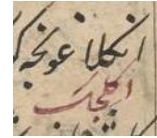 انكلماغونجه
اكلجك